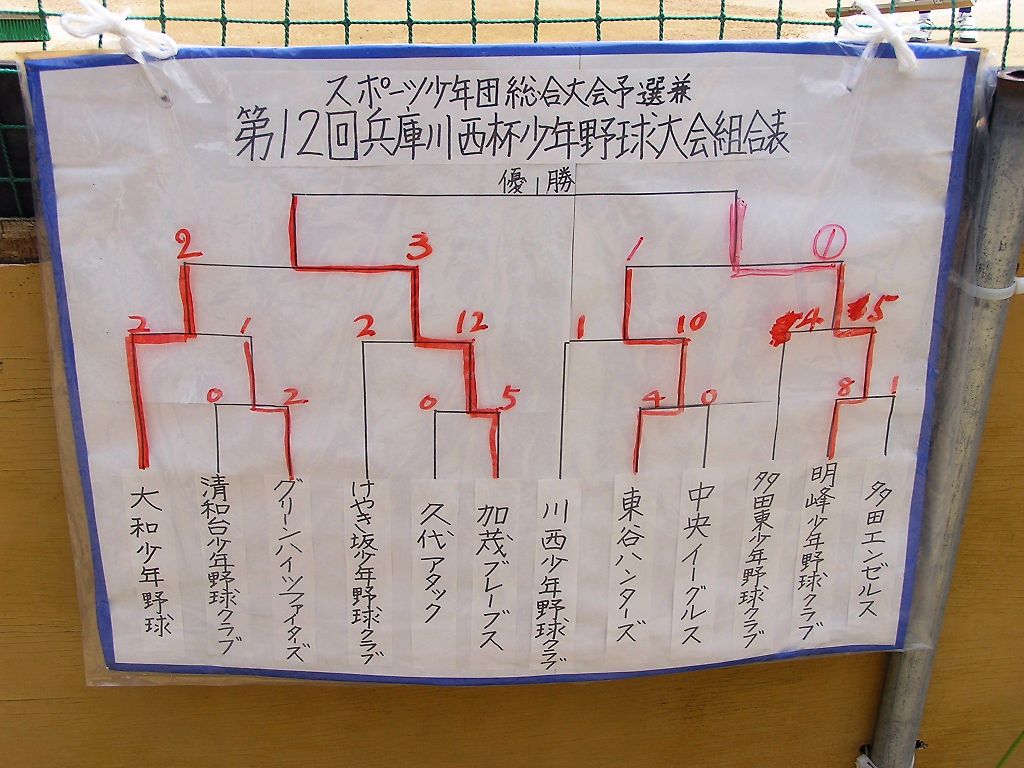 スポーツ少年団総合大会予選兼
第12回兵庫川西杯少年野球大会組合表
優勝
2 3 1 ①
2 1 2 12 1 10 4 5
0 2 0 5 4 0 8 1
大和少年野球
清和台少年野球クラブ
グリーンハイツファイターズ
けやき坂少年野球クラブ
久代アタック
加茂ブレーブス
川西少年野球クラブ
東谷ハンターズ
中央イーグルス
多田東少年野球クラブ
明峰少年野球クラブ
多田エンゼルス